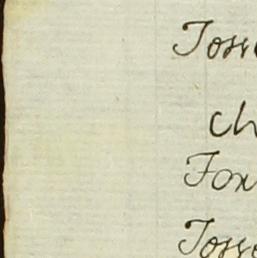 Joss
ch
Fox
Josse